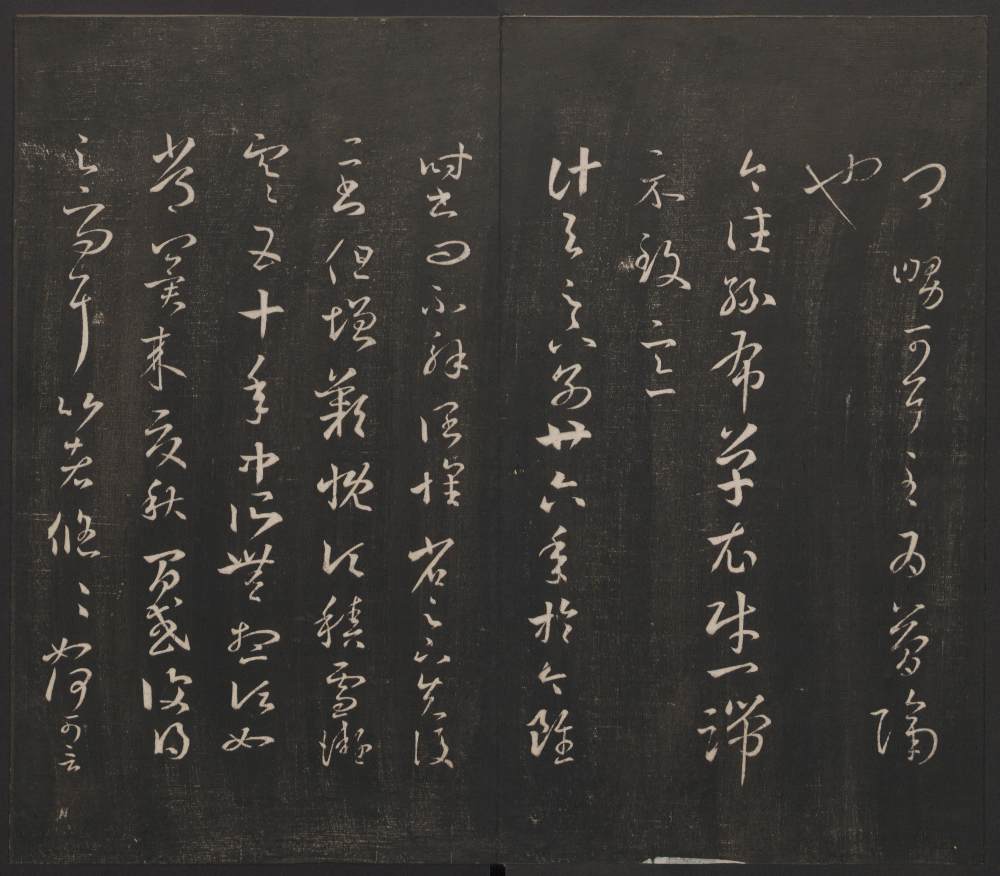 卿舅可耳至為簡隔
也
今往絲布單衣財一端
示致意
計與足下別廿六年於今雖
時書問不解闊懷省足下先後
二書但增歎慨頃積雪凝
寒五十年中所無想頃如
常冀來夏秋間或復得
足下問耳比者悠悠如何可言